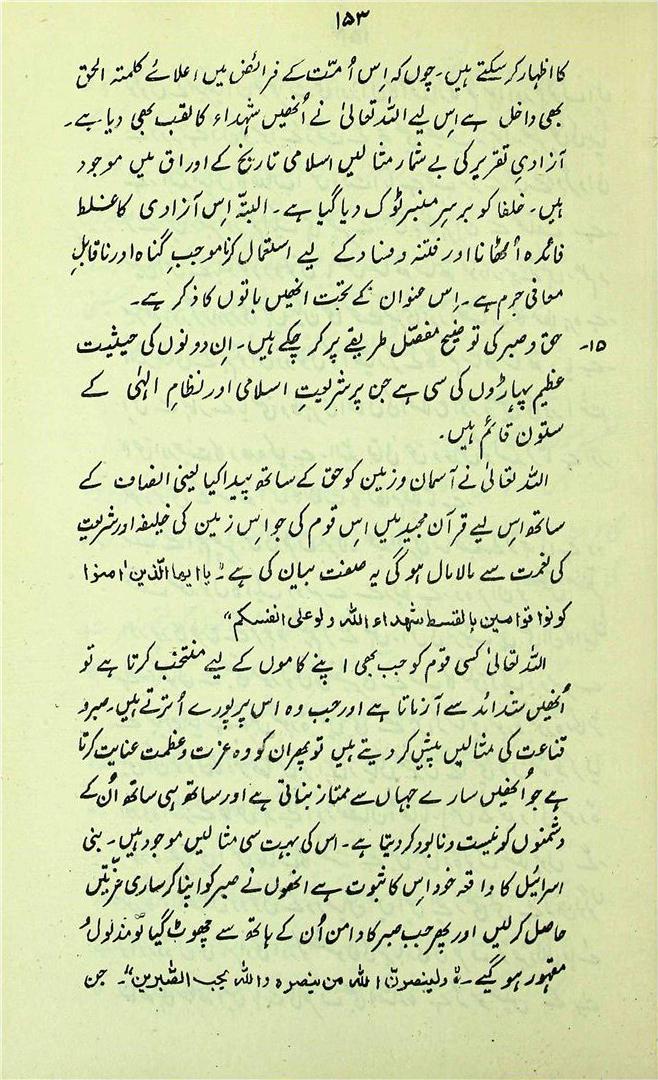 ۱۵۳
کا اظہار کر سکتے ہیں۔ چوں کہ اِس اُمّت کے فرائض میں اعلائے کلمتہ الحق
بھی داخل ہے اِس لیے اللہ تعالیٰ نے اُنھیں شہداء کا لقب بھی دیا ہے۔
آزادیِ تقریر کی بے شمار مثالیں اسلامی تاریخ کے اوراق میں موجود
ہیں۔ خلفا کو برسرِ منبر ٹوک دیا گیا ہے۔ البتّہ اِس آزادی کا غلط
فائدہ اُٹھانا اور فتنہ و فساد کے لیے استعمال کرنا موجبِ گناہ اور ناقابلِ
معافی جرم ہے۔ اِس عنوان کے تحت انھیں باتوں کا ذکر ہے۔
۱۵۔ حق و صبر کی توضیح مفصّل طریقے پر کر چکے ہیں۔ اِن دونوں کی حیثیت
عظیم پہاڑوں کی سی ہے جن پر شریعتِ اسلامی اور نظامِ الہٰی کے
ستون قائم ہیں۔
اللہ تعالیٰ نے آسمان و زمین کو حق کے ساتھ پیدا کیا یعنی انصاف کے
ساتھ اِس لیے قرآن مجید میں اِس قوم کی جو اِس زمین کی خلیفہ اور شریعت
کی نعمت سے مالامال ہوگی یہ صفت بیان کی ہے : یا ایہا الّذین اٰمنوا
کونوا قوامین بالقسط شهداء الله ولو على انفسکم"
اللہ تعالیٰ کسی قوم کو جب بھی اپنے کاموں کے لیے منتخب کرتا ہے تو
اُنھیں شدائد سے آزماتا ہے اور جب وہ اس پر پورے اُترتے ہیں۔ صبر و
قناعت کی مثالیں پیش کر دیتے ہیں تو پھر ان کو وہ عزت و عظمت عنایت کرتا
ہے جو اُنھیں سارے جہاں سے ممتاز بناتی ہے اور ساتھ ہی ساتھ اُن کے
دشمنوں کو نیست و نابود کر دیتا ہے۔ اس کی بہت سی مثالیں موجود ہیں۔ بنی
اسرائیل کا واقعہ خود اِس کا ثبوت ہے انھوں نے صبر کو اپنا کر ساری عزّتیں
حاصل کرلیں اور پھر جب صبر کا دامن اُن کے ہاتھ سے چھوٹ گیا تو مذلول و
مقہور ہو گیے۔ "ولینصرنّ الله من ینصره والله یحب الصّٰبرین"۔ جن